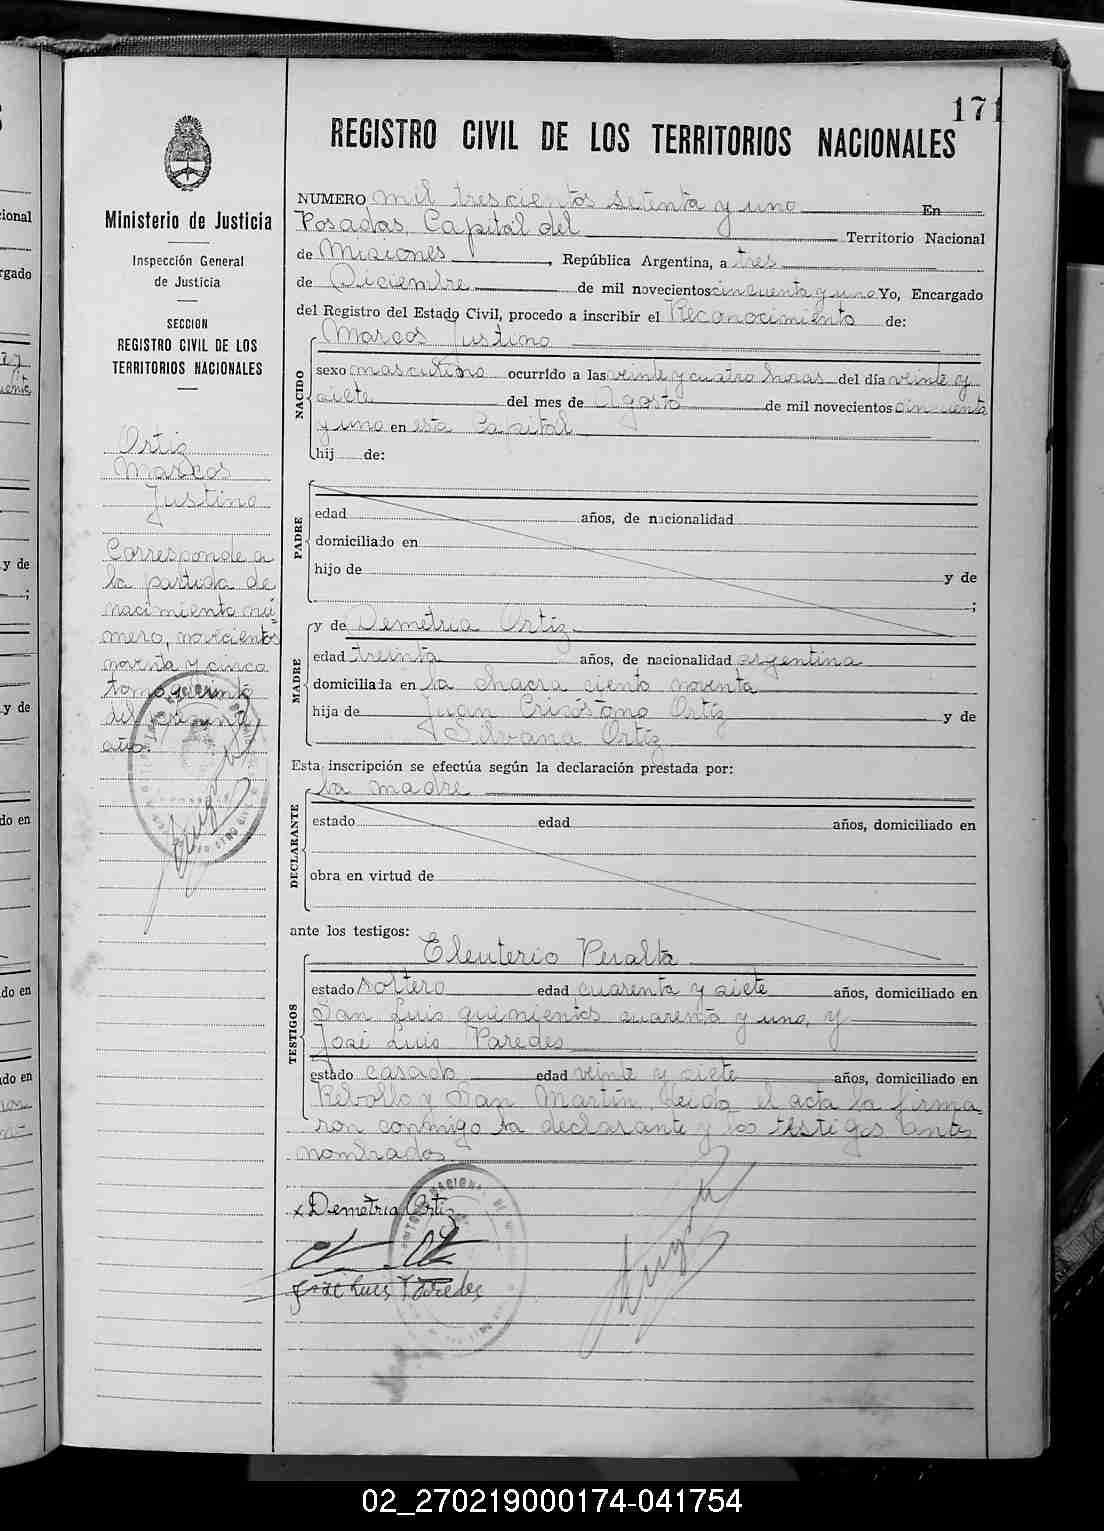 171
REGISTRO CIVIL DE LOS TERRITORIOS NACIONALES
Ministerio de Justicia
Inspección General
de Justicia
SECCION
REGISTRO CIVIL DE LOS
TERRITORIOS NACIONALES
Ortiz
Marcos
Justino
Corresponde a
la partida de
nacimiento nú-
mero, novecientos
noventa y cinco
tomo quinto
del
año.
NUMERO mil trescientos setenta y uno En
Posadas, Capital del Territorio Nacional
de Misiones, República Argentina, a tres
de Diciembre de mil novecientos cincuenta y uno Yo, Encargado
del Registro del Estado Civil, procedo a inscribir el Reconocimiento de:
NACIDO
Marcos Justino
sexo masculino ocurrido a las veinte y cuatro horas del día veinte y
siete del mes de Agosto de mil novecientos cincuenta
y uno en esta Capital
hij de:
PADRE
edad años, de nacionalidad
domiciliado en
hijo de y de
;
MADRE
y de Demetria Ortiz
edad treinta años, de nacionalidad argentina
domiciliada en la chacra ciento noventa
hija de Juan Crisóstomo Ortíz y de
Silvana Ortíz
Esta inscripción se efectúa según la declaración prestada por:
DECLARANTE
la madre
estado edad años, domiciliado en
obra en virtud de
ante los testigos:
TESTIGOS
Eleuterio Peralta
estado soltero edad cuarenta y siete años, domiciliado en
San Luis quinientos cuarenta y uno, y
José Luis Paredes
estado casado edad veinte y siete años, domiciliado en
Rebollo y San Martín. Leida el acta la firma-
ron conmigo la declarante y los testigos antes
nombrados
x Demetria Ortiz
José Luis Paredes
02_270219000174-041754